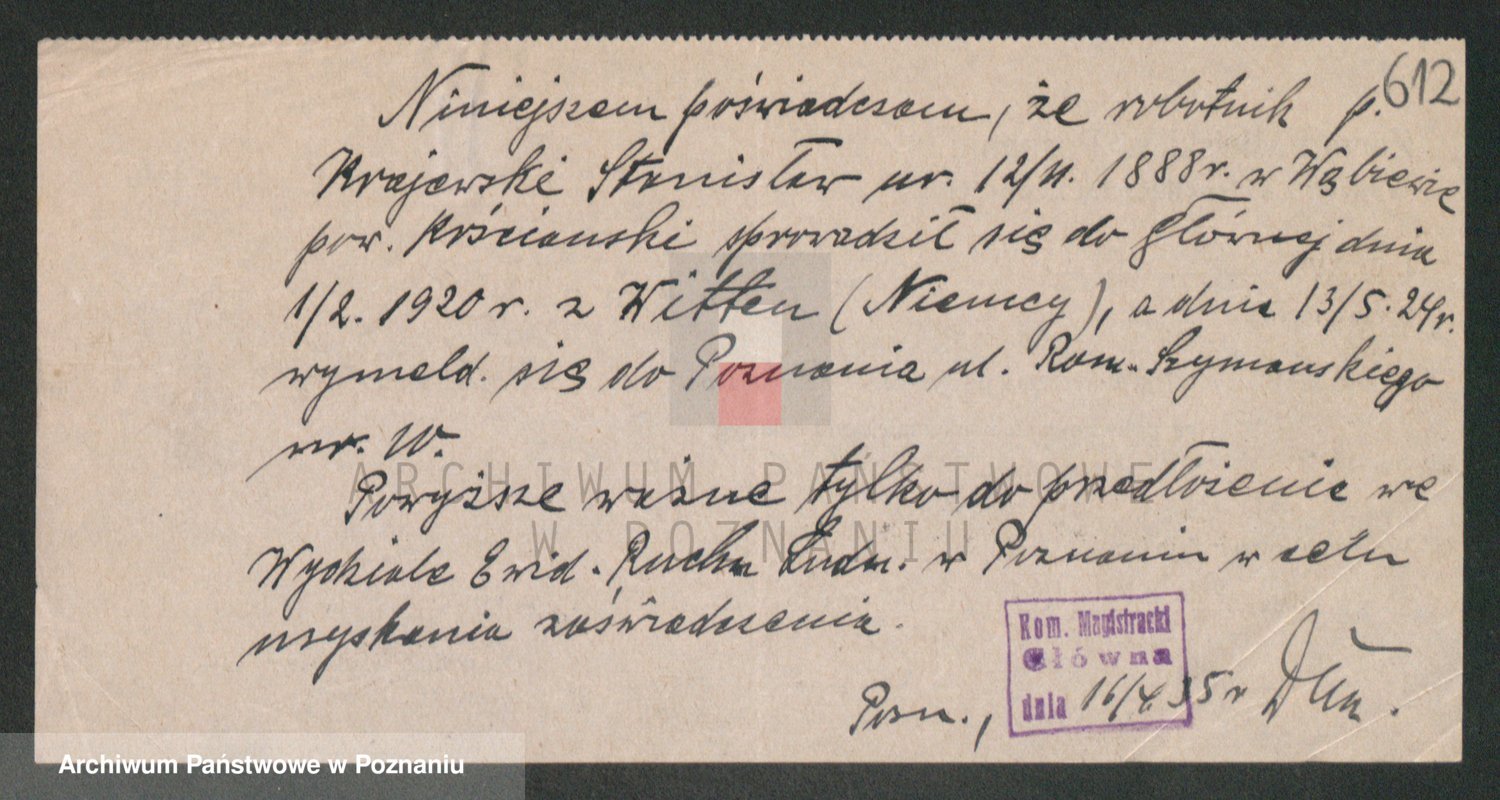 612
Niniejszem poświadczam, że robotnik p.
Krajewski Stanisław ur. 12/11. 1888 r. w Wąbiewie
pow. Kościański sprowadził się do Głównej dnia
1/2. 1920 r. z Witten (Niemcy), a dnia 13/5. 24 r.
wymeld. się do Poznania ul. Rom. Szymańskiego
nr. 10.
Powyższe ważne tylko do przedłożenia we
Wydziale Ewid. Ruchu Ludn. w Poznaniu w celu
uzyskania zaświadczenia.
Kom. Magistracki
Główna
Pozn., dnia 16/4 35 r
ARCHIWUM PAŃSTWOWE
W POZNANIU
Archiwum Państwowe w Poznaniu